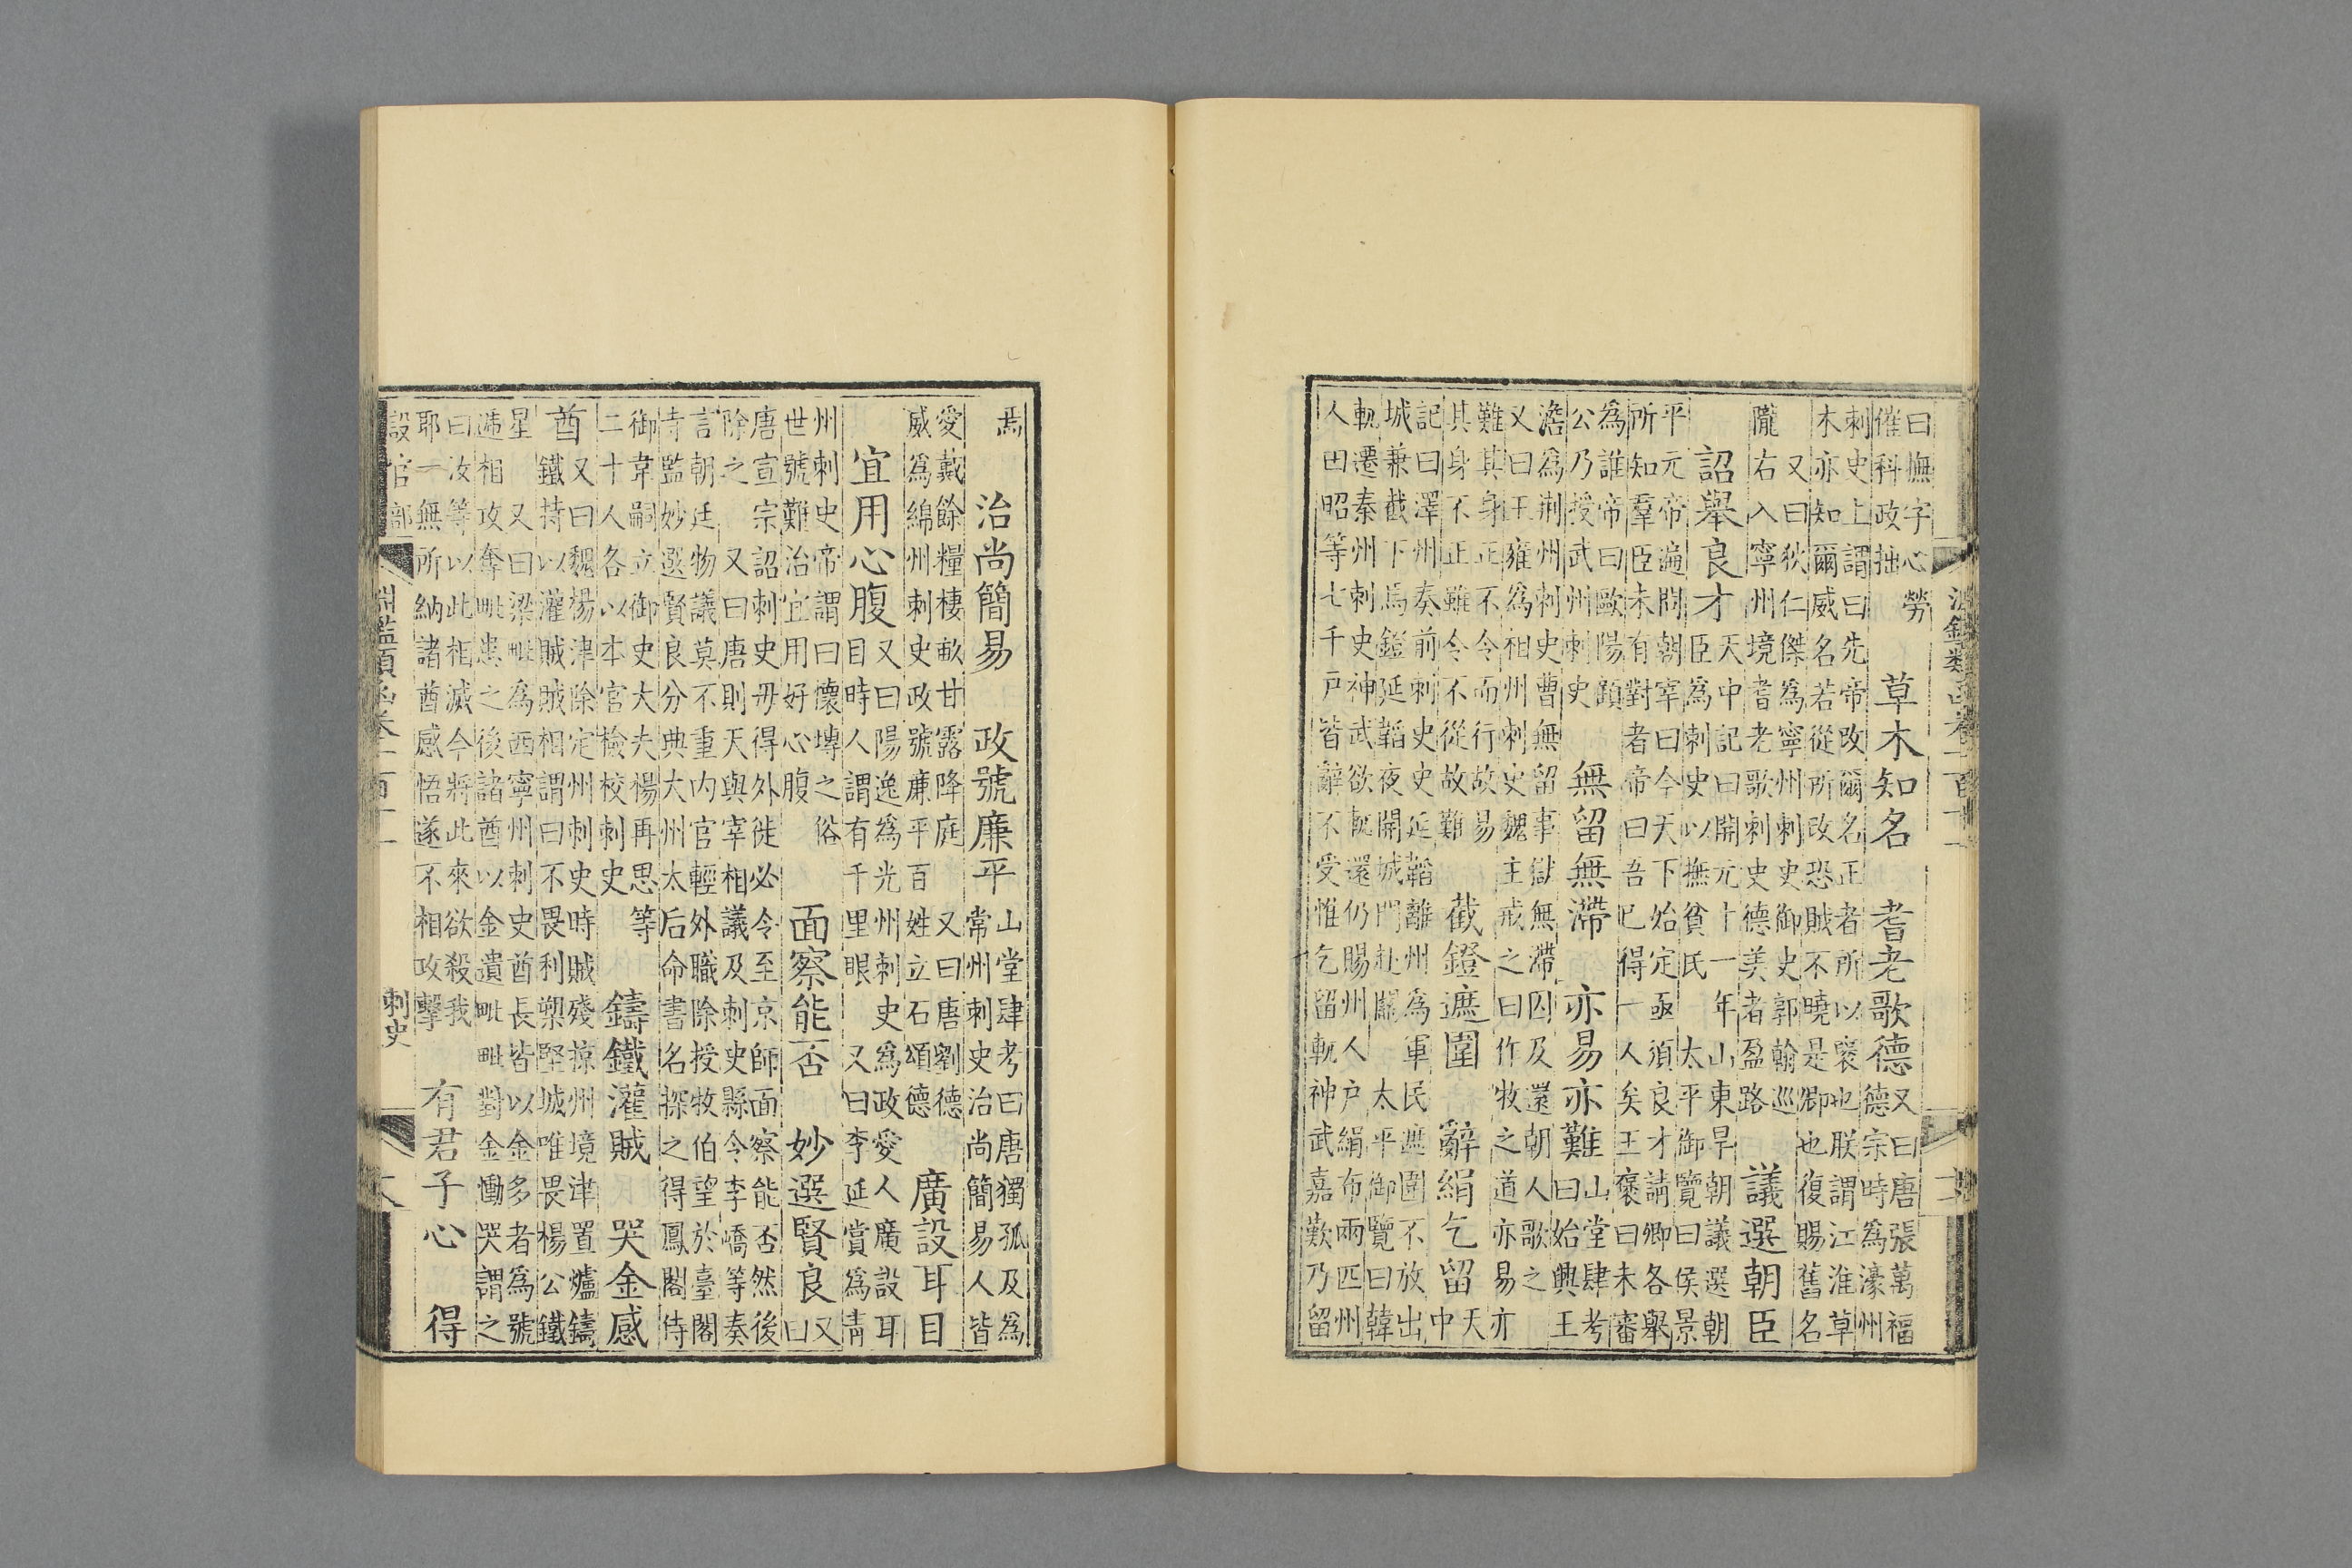 曰撫字心勞
催科政拙
草木知名　耆老歌德
又曰唐張萬福
德宗時為濠州
刺史上謂曰先帝改爾名正者所以褒也朕謂江淮草
木亦知爾威名若從所改恐賊不曉是卿也復賜舊名
又曰狄仁傑為寧州刺史御史郭翰巡
隴右入寧州境耆老歌刺史德美者盈路
議選朝臣
詔舉良才
天中記曰開元十一年山東旱朝議選朝
臣為刺史以撫貧民　太平御覽曰侯景
平元帝遍問朝宰曰今天下始定亟須良才請卿各舉
所知羣臣未有對者帝曰吾已得一人矣王褒曰未審
為誰帝曰歐陽頠
公乃授武州刺史
無留無滯　亦易亦難
山堂肆考
曰始興王
澹為荊州刺史曹無留事獄無滯囚及還朝人歌之
又曰王雍為相州刺史魏主戒之曰作牧之道亦易亦
難其身正不令而行故易
其身不正雖令不從故難
截鐙遮圍　辭絹乞留
天
中
記曰澤州奏前刺史史延韜離州為軍民遮圍不放出
城兼截下馬鐙延韜夜開城門赴闕　太平御覽曰韓
軌遷秦州刺史神武欲軌還仍賜州人戶絹布兩匹州
人田昭等七千戶皆辭不受惟乞留軌神武嘉歎乃留
焉
治尚簡易　政號廉平
山堂肆考曰唐獨孤及為
常州刺史治尚簡易人皆
愛戴餘糧棲畝甘露降庭　又曰唐劉德
威為綿州刺史政號廉平百姓立石頌德
廣設耳目
宜用心腹
又曰陽逸為光州刺史為政愛人廣設耳
目時人謂有千里眼　又曰李延賞為青
州刺史帝謂曰懷塼之俗
世號難治宜用好心腹
面察能否　妙選賢良
又
曰
唐宣宗詔刺史毋得外徙必令至京師面察能否然後
除之　又曰唐則天與宰相議及刺史縣令李嶠等奏
言朝廷物議莫不重內官輕外職除授牧伯望於臺閣
寺監妙選賢良分典大州太后命書名探之得鳳閣侍
御韋嗣立御史大夫楊再思等
二十人各以本官檢校刺史
鑄鐵灌賊　哭金感
酋
又曰魏楊津除定州刺史時賊殘掠州境津置爐鑄
鐵持以灌賊賊相謂曰不畏利槊堅城唯畏楊公鐵
星　又曰梁毗為西寧州刺史酋長皆以金多者為號
遞相攻奪毗患之後諸酋以金遺毗毗對金慟哭謂之
曰汝等以此相滅今將此來欲殺我
耶一無所納諸酋感悟遂不相攻擊
有君子心　得
設官部　淵鑑類函卷一百十一　刺史